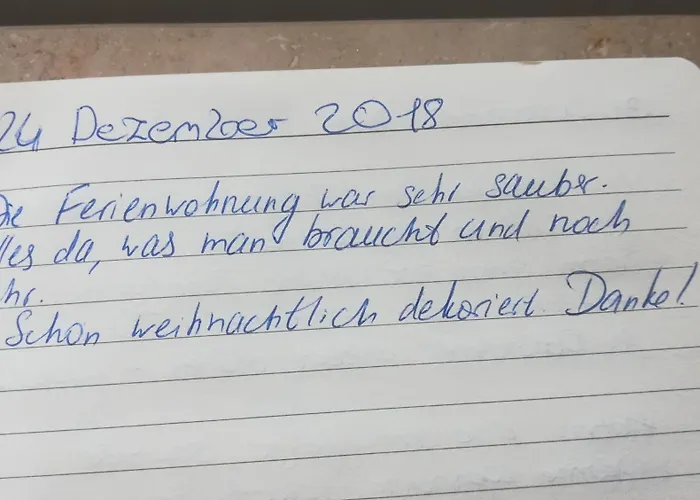 24 Dezember 2018
Die Ferienwohnung war sehr sauber.
lles da, was man braucht und noch
hr.
Schon weihnachtlich dekoriert. Danke!